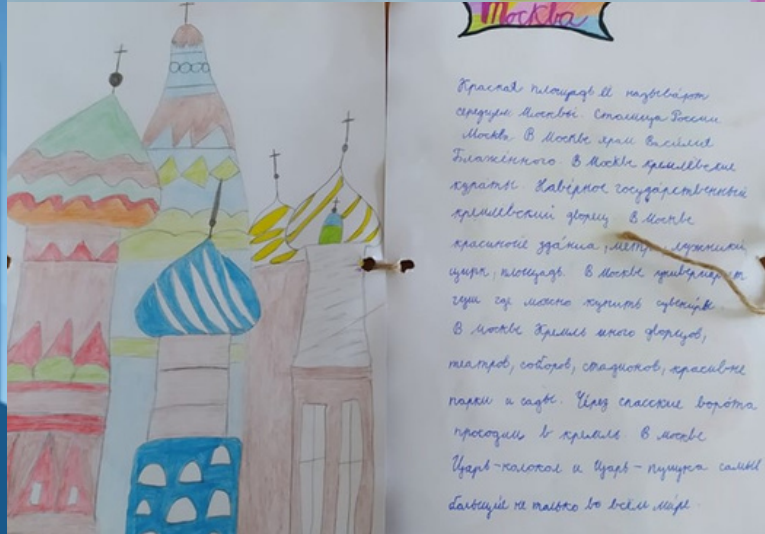 Москва
Красная площадь её называ́ют
середцем Москвы. Столица России
Москва. В Москве храм Василия
Блаже́нного. В Москве кремлёвские
кура́ты. Наве́рное госуда́рственный
кремлёвский дворец В Москве
зда́ния, метро, лужники
цирк, площадь. В Москве универмаг
гум где можно купить сувени́ры
В Москве Кремль много дворцов,
театров, соборов, стадионов, красивые
парки и сады. Че́рез спасские воро́та
проходим в кремль. В москве
Царь-колокол и Царь-пушка самые
больши́е не только во всём ми́ре.